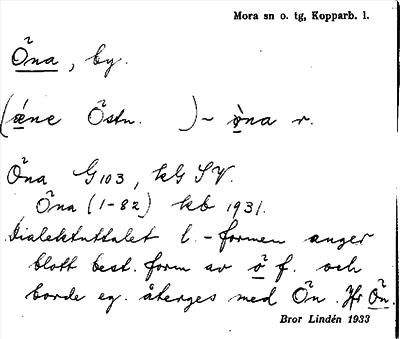 Mora sn o. tg, Kopparb. l.
Õna, by.
(æ̀ne Östn. ) ~ ǫ̀na r.
Õna G103, kG SV.
Õna (1-82) kb 1931.
Dialektuttalet l.-formen anger
blott best. form av õ f. och
borde eg. återges med Õn. Jfr Õn.
Bror Lindén 1933